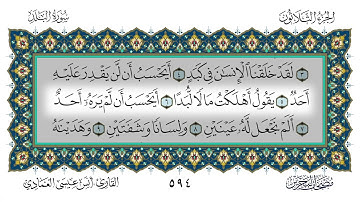 الجزء الثلاثون
سورة البلد
لَقَدْ خَلَقْنَا ٱلْإِنسَٰنَ فِي كَبَدٍ ٤ أَيَحْسَبُ أَن لَّن يَقْدِرَ عَلَيْهِ
أَحَدٌ ٥ يَقُولُ أَهْلَكْتُ مَالًا لُّبَدًا ٦ أَيَحْسَبُ أَن لَّمْ يَرَهُۥٓ أَحَدٌ
٧ أَلَمْ نَجْعَل لَّهُۥ عَيْنَيْنِ ٨ وَلِسَانًا وَشَفَتَيْنِ ٩ وَهَدَيْنَٰهُ
٥٩٤
القارئ: أنس عيسى العمادي